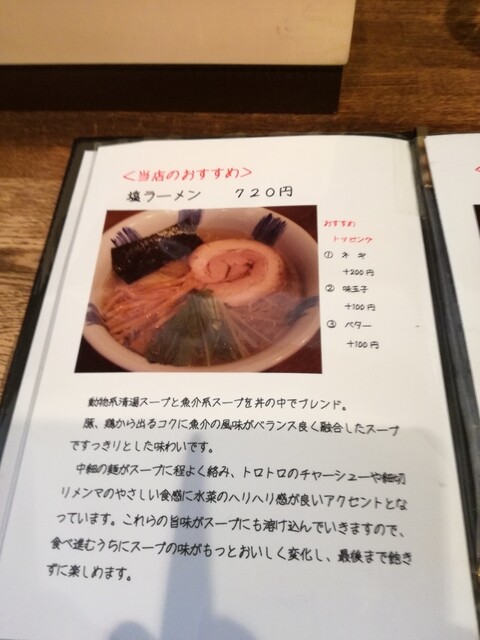 ＜当店のおすすめ＞
塩ラーメン　７２０円
おすすめ
トッピング
① ネギ
＋200円
② 味玉子
＋100円
③ バター
＋100円
動物系清湯スープと魚介系スープを丼の中でブレンド。
豚、鶏から出るコクに魚介の風味がバランス良く融合したスープ
ですっきりとした味わいです。
中細の麺がスープに程よく絡み、トロトロのチャーシューや細切
りメンマのやさしい食感に水菜のハリハリ感が良いアクセントとな
っています。これらの旨味がスープにも溶け込んでいきますので、
食べ進むうちにスープの味がもっとおいしく変化し、最後まで飽き
ずに楽しめます。